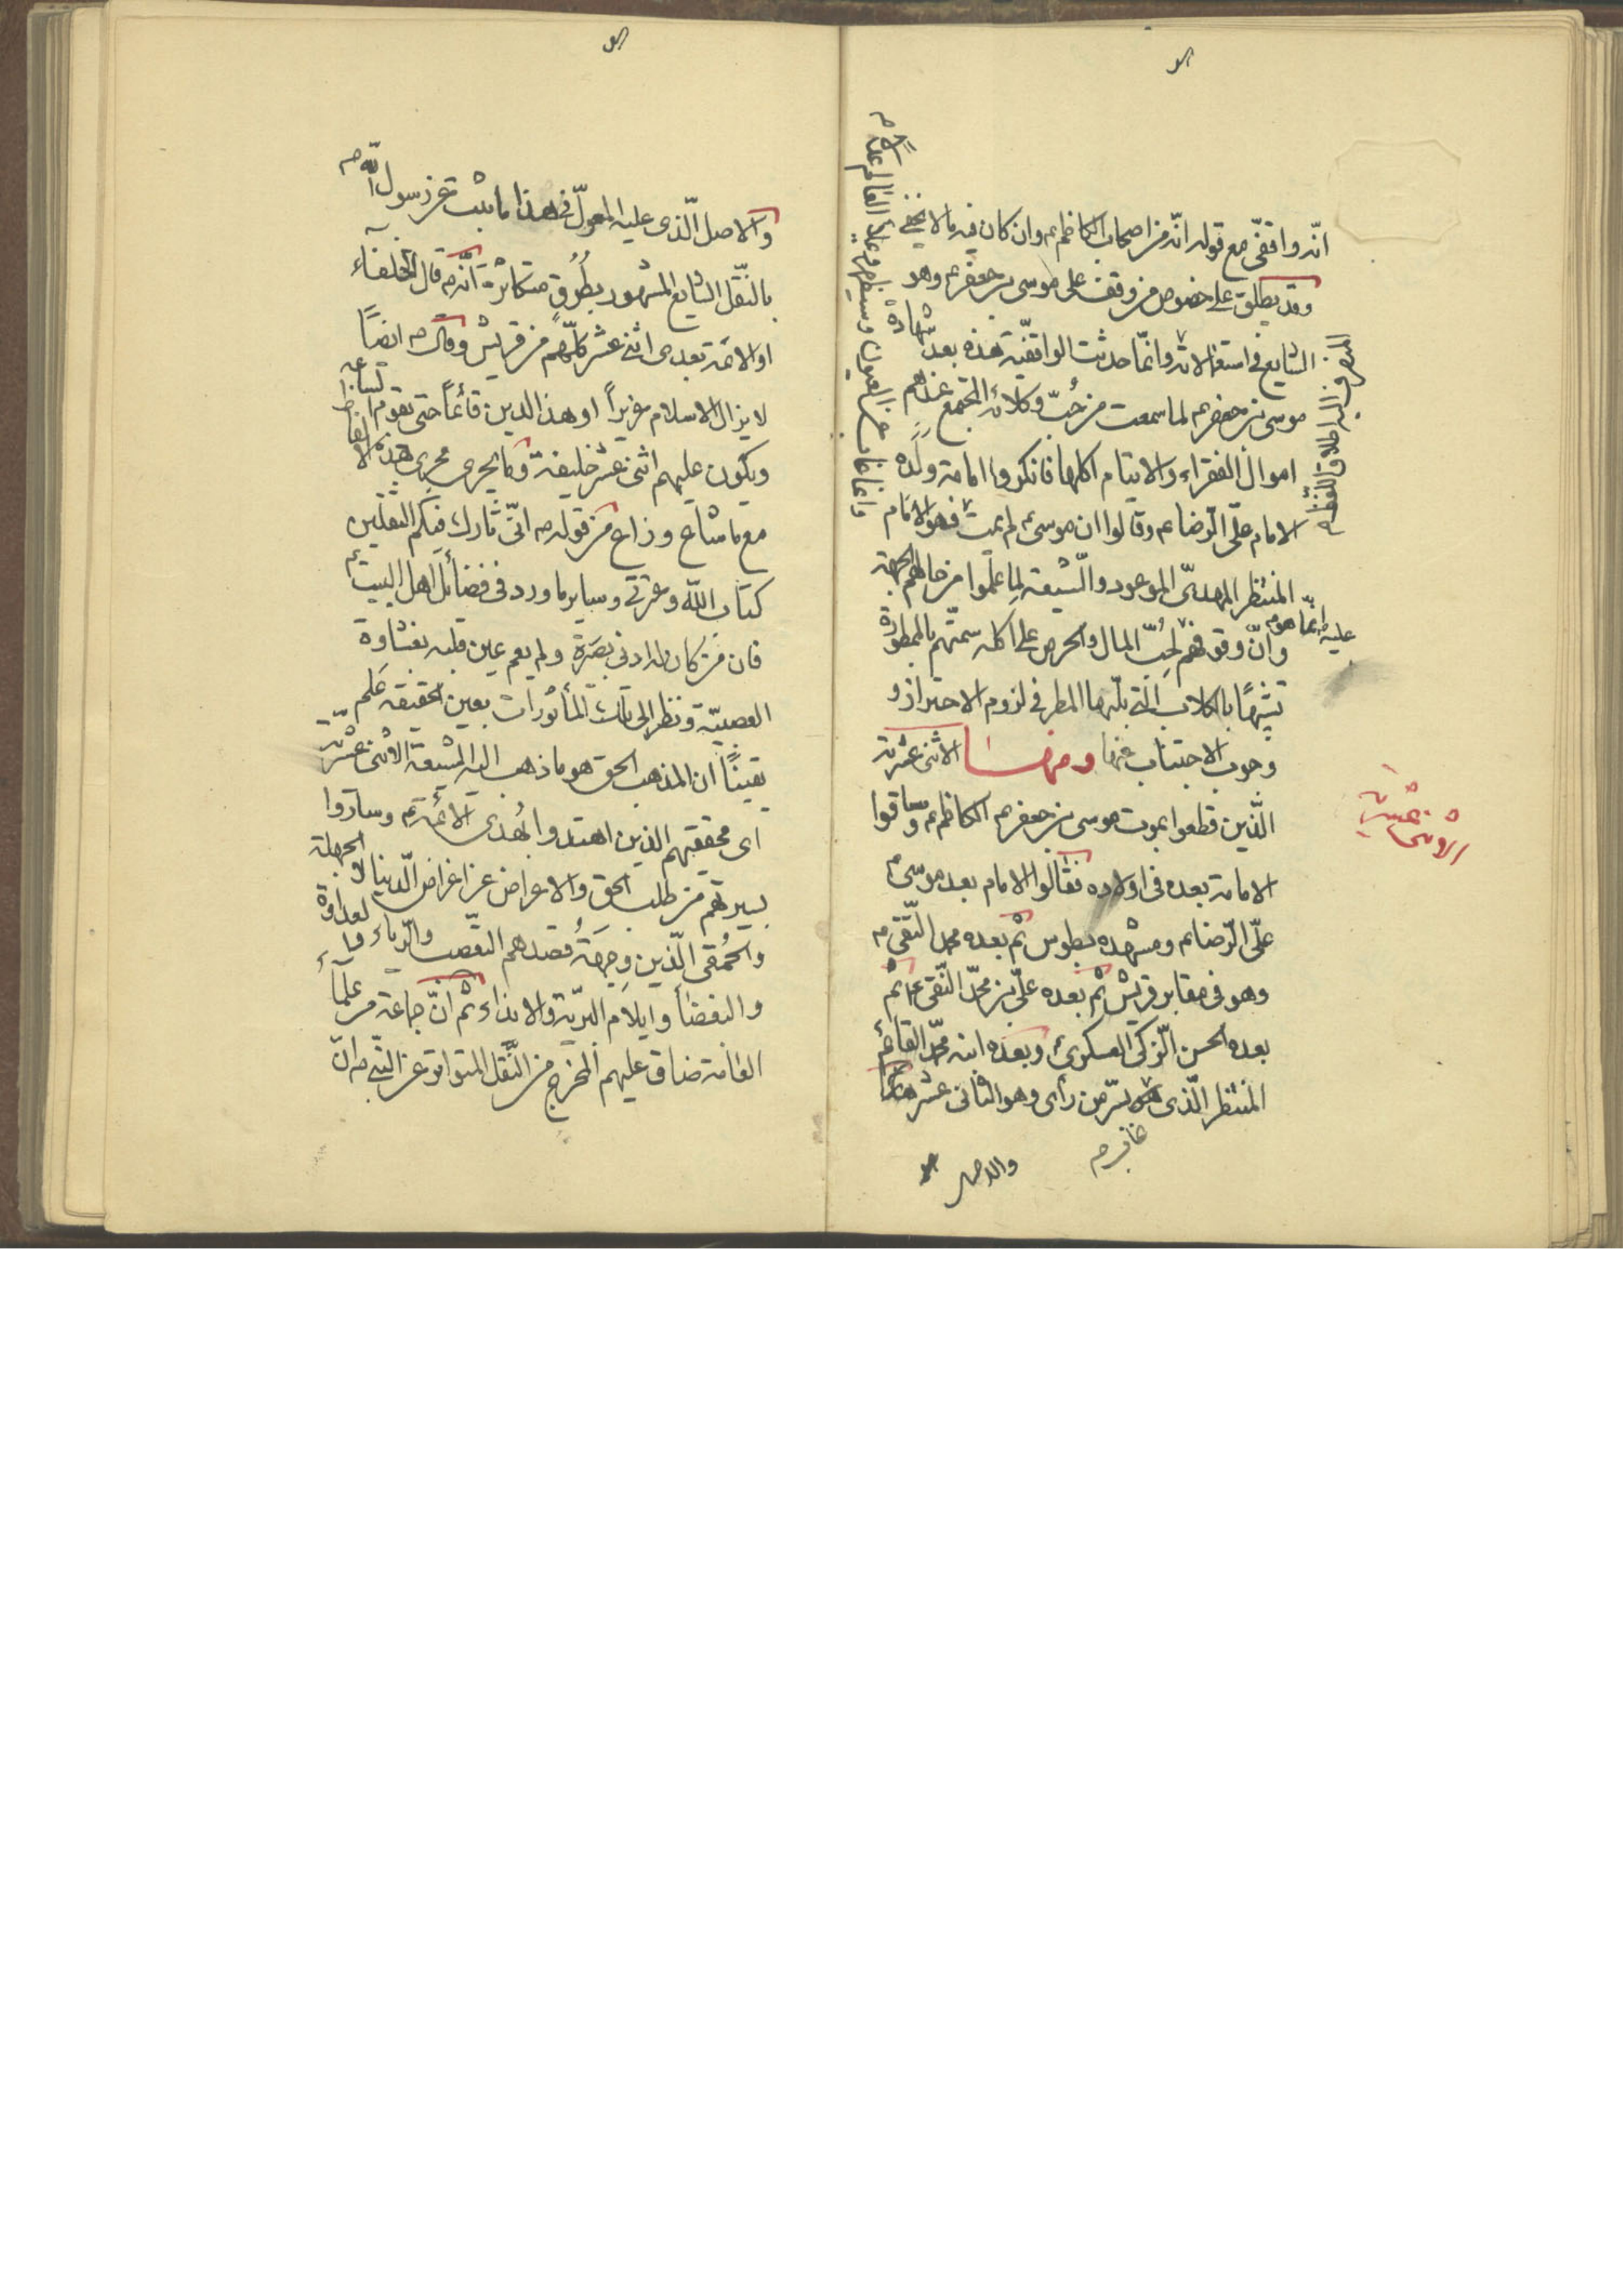 انّه واقفىّ مع قوله انّه من اصحاب الكاظم ع وان كان فيه ما لا يخفى
وقد يطلق على خصوص من وقف على موسى بن جعفر ع وهو
الشايع فى استعمالاته وانّما حدثت الواقفيّة هذه بعد شهادة
موسى بن جعفر ع لما سمعت من حُبّ وكلائه المجتمع عندهم
اموال الفقراء والايتام اكلها فانكروا امامة ولده
الامام علىّ الرّضا ع وقالوا ان موسى ع لم يمت فهو الامام
المنتظر المهدىّ الموعود والشّيعة لِما علموا من حالهم الجهة
وانّ وقوفهم لحُبّ المال والحرص على اكله سمّتهم بالممطورة
تشبيهًا بالكلاب الّتى بلّها المطر فى لزوم الاحتراز و
وجوب الاجتناب عنها ومنها الاثنى عشرية
الّذين قطعوا بموت موسى بن جعفر ع الكاظم ع وساقوا
الامامة بعده فى اولاده فقالوا الامام بعد موسى ع
علىّ الرّضا ع ومشهده بطوس ثم بعده محمد التّقى ع
وهو فى مقابر قريش ثم بعده علىّ بن محمّد النّقى ع ثم
بعده الحسن الزّكى العسكرى ع وبعده ابنه محمّد القائم
المنتظر الّذى هو بسرّ من رأى وهو الثانى عشر هذا
المنصرف اليه اطلاق اللفظة
عليه انّما هو
وانما غاب عن العيون وسيظهر ويملأ العالم عدلا
الاثنى عشرية
والاصل
والاصل الّذى عليه المعوّل فى هذا ما ثبت عن رسول اللّه ص
بالنّقل الشايع المشهور بطُرُقٍ متكاثرة انّه ص قال الخلفاء
او الائمة بعدى اثنى عشر كلّهم من قريش وقال ص ايضًا
لا يزال الاسلام عزيزاً او هذا الدين قائمًا حتى تقوم الساعة
ويكون عليهم اثنى عشر خليفة وما يجرى مجرى هذه الالفاظ
مع ما شاع وذاع من قوله ص انّى تارك فيكم الثقلين
كتاب اللّه وعترتى وساير ما ورد فى فضائل اهل البيت ع
فان من كان له ادنى بصَرَة ولم يعم عين قلبه بغشاوة
العصبيّة ونظر الى تلك المأثورات بعين الحقيقة عَلم
يقينًا ان المذهب الحق هو ما ذهب اليه الشيعة الاثنى عشريّة
اى محققيهم الذين اهتدوا بهُدى الائمة ع وساروا
بسيرتهم من طلب الحق والاعراض عن اغراض الّدنيا لا الجهلة
والحُمقى الّذين وجهةُ قصدهم التعصب والرّياء والعداوة
والبغضاء وايلام البريّة والايذاء ثم انّ جماعة من علماء
العامة ضاق عليهم المخرج من النّقل المتواتر عن النّبى ص انّ